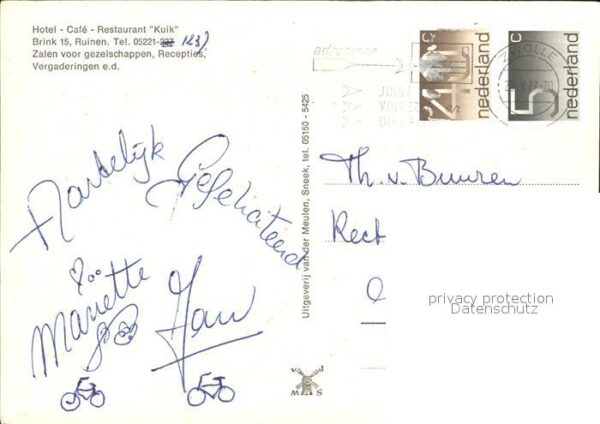 Hotel - Café - Restaurant "Kuik"
Brink 15, Ruinen. Tel. 05221- 1231
Zalen voor gezelschappen, Recepties,
Vergaderingen e.d.
Hartelijk
Gefeliciteerd
Mariette
Jan
Uitgeverij van der Meulen, Sneek, tel. 05150 - 5425
M S
adressen
JUIST
VOLLED
ZWOLLE
c
nederland
5 c
nederland
Th. v. Buuren
Rect
privacy protection
Datenschutz